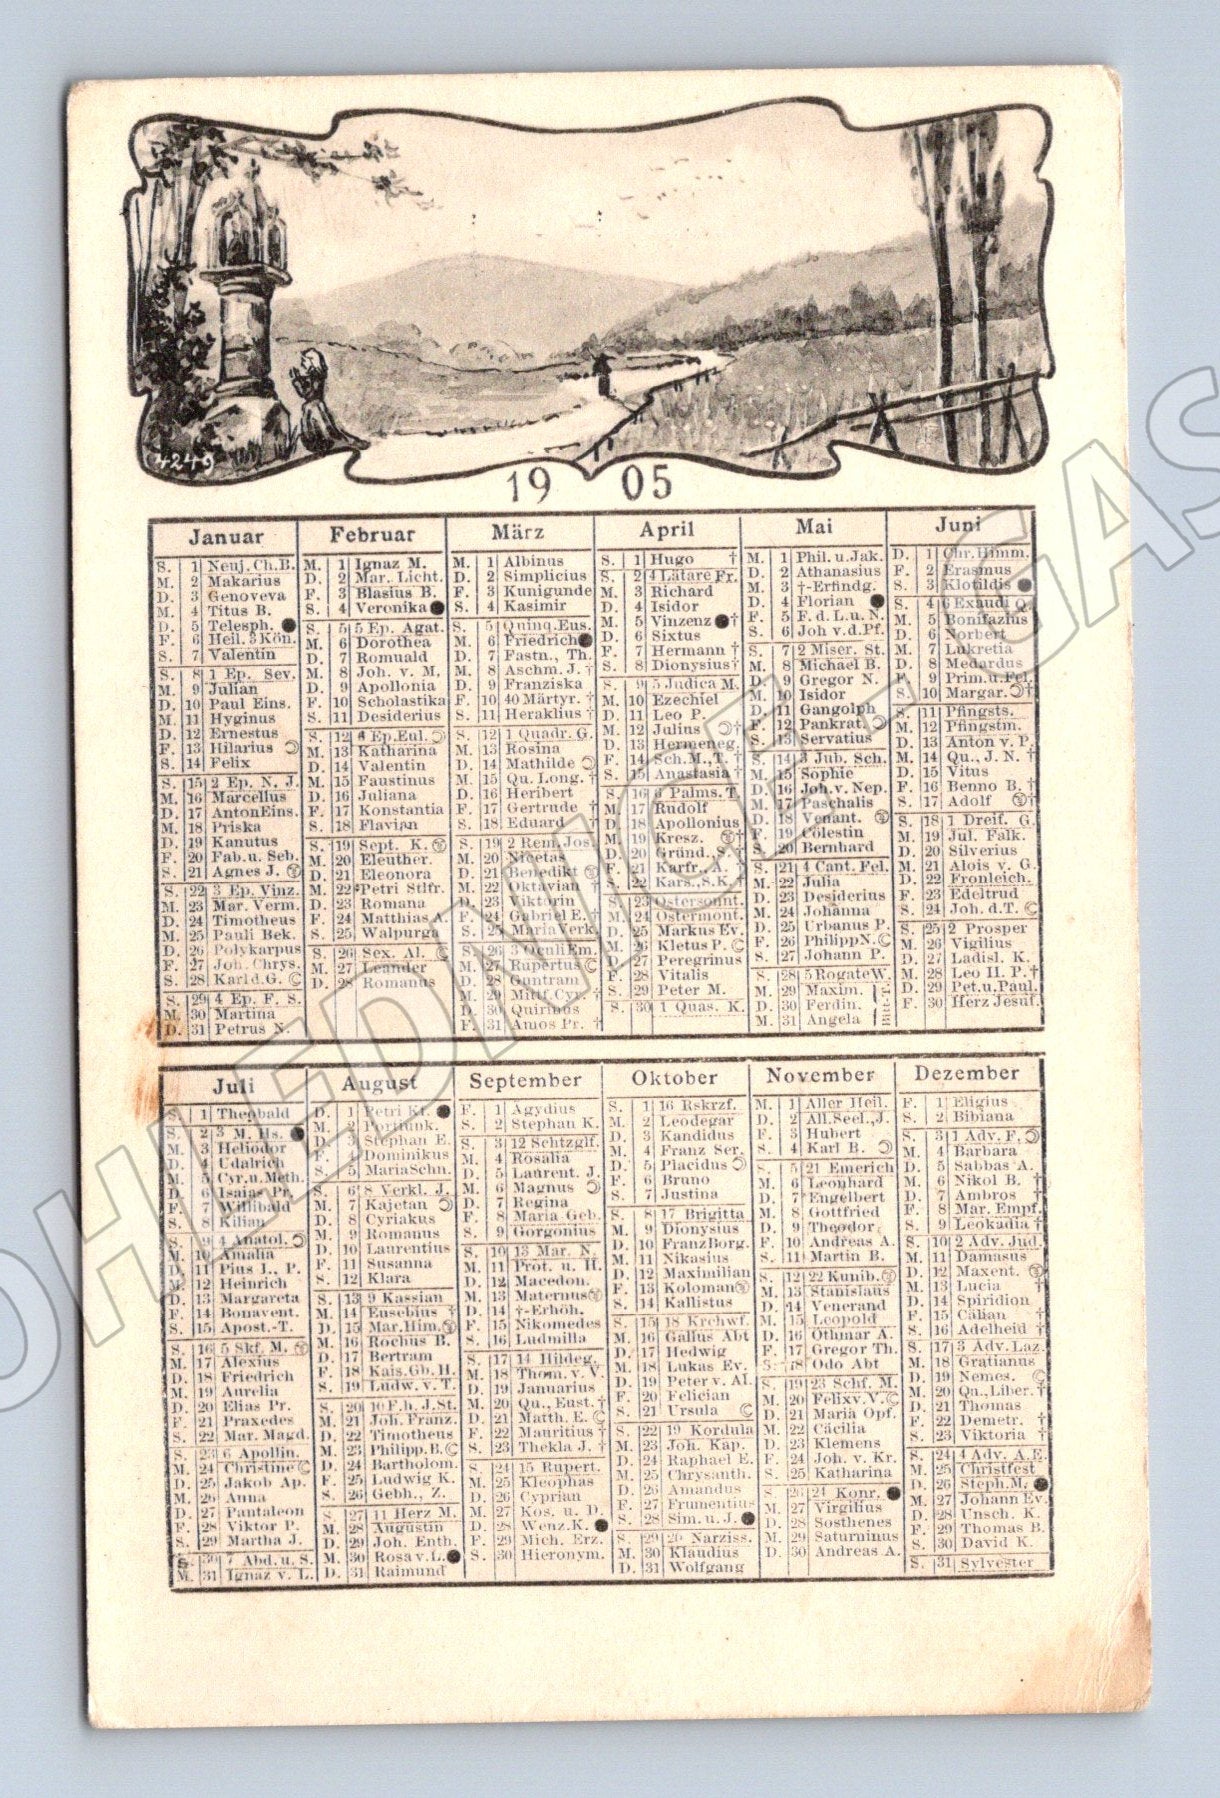 4249
19 05
Januar
S. 1 Neuj. Ch.B.
M. 2 Makarius
D. 3 Genoveva
M. 4 Titus B.
D. 5 Telesph.
F. 6 Heil. 3 Kön.
S. 7 Valentin
S. 8 1 Ep. Sev.
M. 9 Julian
D. 10 Paul Eins.
M. 11 Hyginus
D. 12 Ernestus
F. 13 Hilarius
S. 14 Felix
S. 15 2 Ep. N. J.
M. 16 Marcellus
D. 17 Anton Eins.
M. 18 Priska
D. 19 Kanutus
F. 20 Fab. u. Seb.
S. 21 Agnes J.
S. 22 3 Ep. Vinz.
M. 23 Mar. Verm.
D. 24 Timotheus
M. 25 Pauli Bek.
D. 26 Polykarpus
F. 27 Joh. Chrys.
S. 28 Karl d. G.
S. 29 4 Ep. F. S.
M. 30 Martina
D. 31 Petrus N.
Februar
M. 1 Ignaz M.
D. 2 Mar. Licht.
F. 3 Blasius B.
S. 4 Veronika
S. 5 5 Ep. Agat.
M. 6 Dorothea
D. 7 Romuald
M. 8 Joh. v. M.
D. 9 Apollonia
F. 10 Scholastika
S. 11 Desiderius
S. 12 6 Ep. Eul.
M. 13 Katharina
D. 14 Valentin
M. 15 Faustinus
D. 16 Juliana
F. 17 Konstantia
S. 18 Flavian
S. 19 Sept. K.
M. 20 Eleuther.
D. 21 Eleonora
M. 22 Petri Stlfr.
D. 23 Romana
F. 24 Matthias A.
S. 25 Walpurga
S. 26 Sex. Al.
M. 27 Leander
D. 28 Romanus
März
M. 1 Albinus
D. 2 Simplicius
F. 3 Kunigunde
S. 4 Kasimir
S. 5 Quinq. Eus.
M. 6 Friedrich
D. 7 Fastn., Th.
M. 8 Aschm. J. †
D. 9 Franziska
F. 10 40 Märtyr. †
S. 11 Heraklius †
S. 12 1 Quadr. G.
M. 13 Rosina
D. 14 Mathilde
M. 15 Qu. Long. †
D. 16 Heribert
F. 17 Gertrude †
S. 18 Eduard †
S. 19 2 Rem. Jos.
M. 20 Nicetas
D. 21 Benedikt
M. 22 Oktavian †
D. 23 Viktorin
F. 24 Gabriel E. †
S. 25 Maria Verk.
S. 26 3 Oculi Em.
M. 27 Rupertus
D. 28 Guntram
M. 29 Mittf. Cyr. †
D. 30 Quirinus
F. 31 Amos Pr. †
April
S. 1 Hugo †
S. 2 4 Lätare Fr.
M. 3 Richard
D. 4 Isidor
M. 5 Vinzenz †
D. 6 Sixtus
F. 7 Hermann †
S. 8 Dionysius †
S. 9 5 Judica M.
M. 10 Ezechiel
D. 11 Leo P.
M. 12 Julius †
D. 13 Hermeneg.
F. 14 Sch. M., T. †
S. 15 Anastasia †
S. 16 6 Palms. T.
M. 17 Rudolf
D. 18 Apollonius
M. 19 Kresz. †
D. 20 Gründ., S. †
F. 21 Karfr., A. †
S. 22 Kars., S.K. †
S. 23 Ostersonnt.
M. 24 Ostermont.
D. 25 Markus Ev.
M. 26 Kletus P.
D. 27 Peregrinus
F. 28 Vitalis
S. 29 Peter M.
S. 30 1 Quas. K.
Mai
M. 1 Phil. u. Jak.
D. 2 Athanasius
M. 3 †-Erfindg.
D. 4 Florian
F. 5 F. d. L. u. N.
S. 6 Joh v. d. Pf.
S. 7 2 Miser. St.
M. 8 Michael B.
D. 9 Gregor N.
M. 10 Isidor
D. 11 Gangolph
F. 12 Pankrat.
S. 13 Servatius
S. 14 3 Jub. Sch.
M. 15 Sophie
D. 16 Joh. v. Nep.
M. 17 Paschalis
D. 18 Venant.
F. 19 Cölestin
S. 20 Bernhard
S. 21 4 Cant. Fel.
M. 22 Julia
D. 23 Desiderius
M. 24 Johanna
D. 25 Urbanus P.
F. 26 Philipp N.
S. 27 Johann P.
S. 28 5 Rogate W.
M. 29 Maxim.
D. 30 Ferdin.
M. 31 Angela
Bitt-T.
Juni
D. 1 Chr. Himm.
F. 2 Erasmus
S. 3 Klotildis
S. 4 6 Exaudi Q.
M. 5 Bonifazius
D. 6 Norbert
M. 7 Lukretia
D. 8 Medardus
F. 9 Prim. u. Fel.
S. 10 Margar. †
S. 11 Pfingsts.
M. 12 Pfingstm.
D. 13 Anton v. P.
M. 14 Qu., J. N. †
D. 15 Vitus
F. 16 Benno B. †
S. 17 Adolf †
S. 18 1 Dreif. G.
M. 19 Jul. Falk.
D. 20 Silverius
M. 21 Alois v. G.
D. 22 Fronleich.
F. 23 Edeltrud
S. 24 Joh. d. T.
S. 25 2 Prosper
M. 26 Vigilius
D. 27 Ladisl. K.
M. 28 Leo II. P. †
D. 29 Pet. u. Paul.
F. 30 Herz Jesuf.
Juli
S. 1 Theobald
S. 2 3 M. Hs.
M. 3 Heliodor
D. 4 Udalrich
M. 5 Cyr. u. Meth.
D. 6 Isaias Pr.
F. 7 Willibald
S. 8 Kilian
S. 9 4 Anatol.
M. 10 Amalia
D. 11 Pius I., P.
M. 12 Heinrich
D. 13 Margareta
F. 14 Bonavent.
S. 15 Apost.-T.
S. 16 5 Skf. M.
M. 17 Alexius
D. 18 Friedrich
M. 19 Aurelia
D. 20 Elias Pr.
F. 21 Praxedes
S. 22 Mar. Magd.
S. 23 6 Apollin.
M. 24 Christine
D. 25 Jakob Ap.
M. 26 Anna
D. 27 Pantaleon
F. 28 Viktor P.
S. 29 Martha J.
S. 30 7 Abd. u. S.
M. 31 Ignaz v. L.
August
D. 1 Petri Kt.
M. 2 Portiunk.
D. 3 Stephan E.
F. 4 Dominikus
S. 5 Maria Schn.
S. 6 8 Verkl. J.
M. 7 Kajetan
D. 8 Cyriakus
M. 9 Romanus
D. 10 Laurentius
F. 11 Susanna
S. 12 Klara
S. 13 9 Kassian
M. 14 Eusebius †
D. 15 Mar. Him.
M. 16 Rochus B.
D. 17 Bertram
F. 18 Kais. Gb. H.
S. 19 Ludw. v. T.
S. 20 10 F. h. J. St.
M. 21 Joh. Franz.
D. 22 Timotheus
M. 23 Philipp. B.
D. 24 Bartholom.
F. 25 Ludwig K.
S. 26 Gebh., Z.
S. 27 11 Herz M.
M. 28 Augustin
D. 29 Joh. Enth.
M. 30 Rosa v. L.
D. 31 Raimund
September
F. 1 Ägydius
S. 2 Stephan K.
S. 3 12 Schtzglf.
M. 4 Rosalia
D. 5 Laurent. J.
M. 6 Magnus
D. 7 Regina
F. 8 Maria Geb.
S. 9 Gorgonius
S. 10 13 Mar. N.
M. 11 Prot. u. H.
D. 12 Macedon.
M. 13 Maternus
D. 14 †-Erhöh.
F. 15 Nikomedes
S. 16 Ludmilla
S. 17 14 Hildeg.
M. 18 Thom. v. V.
D. 19 Januarius
M. 20 Qu., Eust. †
D. 21 Matth. E.
F. 22 Mauritius †
S. 23 Thekla J. †
S. 24 15 Rupert.
M. 25 Kleophas
D. 26 Cyprian
M. 27 Kos. u. D.
D. 28 Wenz. K.
F. 29 Mich. Erz.
S. 30 Hieronym.
Oktober
S. 1 16 Rskrzf.
M. 2 Leodegar
D. 3 Kandidus
M. 4 Franz Ser.
D. 5 Placidus
F. 6 Bruno
S. 7 Justina
S. 8 17 Brigitta
M. 9 Dionysius
D. 10 Franz Borg.
M. 11 Nikasius
D. 12 Maximilian
F. 13 Koloman
S. 14 Kallistus
S. 15 18 Krchwf.
M. 16 Gallus Abt
D. 17 Hedwig
M. 18 Lukas Ev.
D. 19 Peter v. Al.
F. 20 Felician
S. 21 Ursula
S. 22 19 Kordula
M. 23 Joh. Kap.
D. 24 Raphael E.
M. 25 Chrysanth.
D. 26 Amandus
F. 27 Frumentius
S. 28 Sim. u. J.
S. 29 20 Narziss.
M. 30 Klaudius
D. 31 Wolfgang
November
M. 1 Aller Heil.
D. 2 All. Seel., J.
F. 3 Hubert
S. 4 Karl B.
S. 5 21 Emerich
M. 6 Leonhard
D. 7 Engelbert
M. 8 Gottfried
D. 9 Theodor
F. 10 Andreas A.
S. 11 Martin B.
S. 12 22 Kunib.
M. 13 Stanislaus
D. 14 Venerand
M. 15 Leopold
D. 16 Othmar A.
F. 17 Gregor Th.
S. 18 Odo Abt
S. 19 23 Schf. M.
M. 20 Felix v. V.
D. 21 Mariä Opf.
M. 22 Cäcilia
D. 23 Klemens
F. 24 Joh. v. Kr.
S. 25 Katharina
S. 26 24 Konr.
M. 27 Virgilius
D. 28 Sosthenes
M. 29 Saturninus
D. 30 Andreas A.
Dezember
F. 1 Eligius
S. 2 Bibiana
S. 3 1 Adv. F.
M. 4 Barbara
D. 5 Sabbas A.
M. 6 Nikol B. †
D. 7 Ambros †
F. 8 Mar. Empf.
S. 9 Leokadia †
S. 10 2 Adv. Jud.
M. 11 Damasus
D. 12 Maxent.
M. 13 Lucia †
D. 14 Spiridion
F. 15 Cälian †
S. 16 Adelheid †
S. 17 3 Adv. Laz.
M. 18 Gratianus
D. 19 Nemes.
M. 20 Qu., Liber. †
D. 21 Thomas
F. 22 Demetr. †
S. 23 Viktoria †
S. 24 4 Adv. A. E.
M. 25 Christfest
D. 26 Steph. M.
M. 27 Johann Ev.
D. 28 Unsch. K.
F. 29 Thomas B.
S. 30 David K.
S. 31 Sylvester
OHLEDNICE-GAS